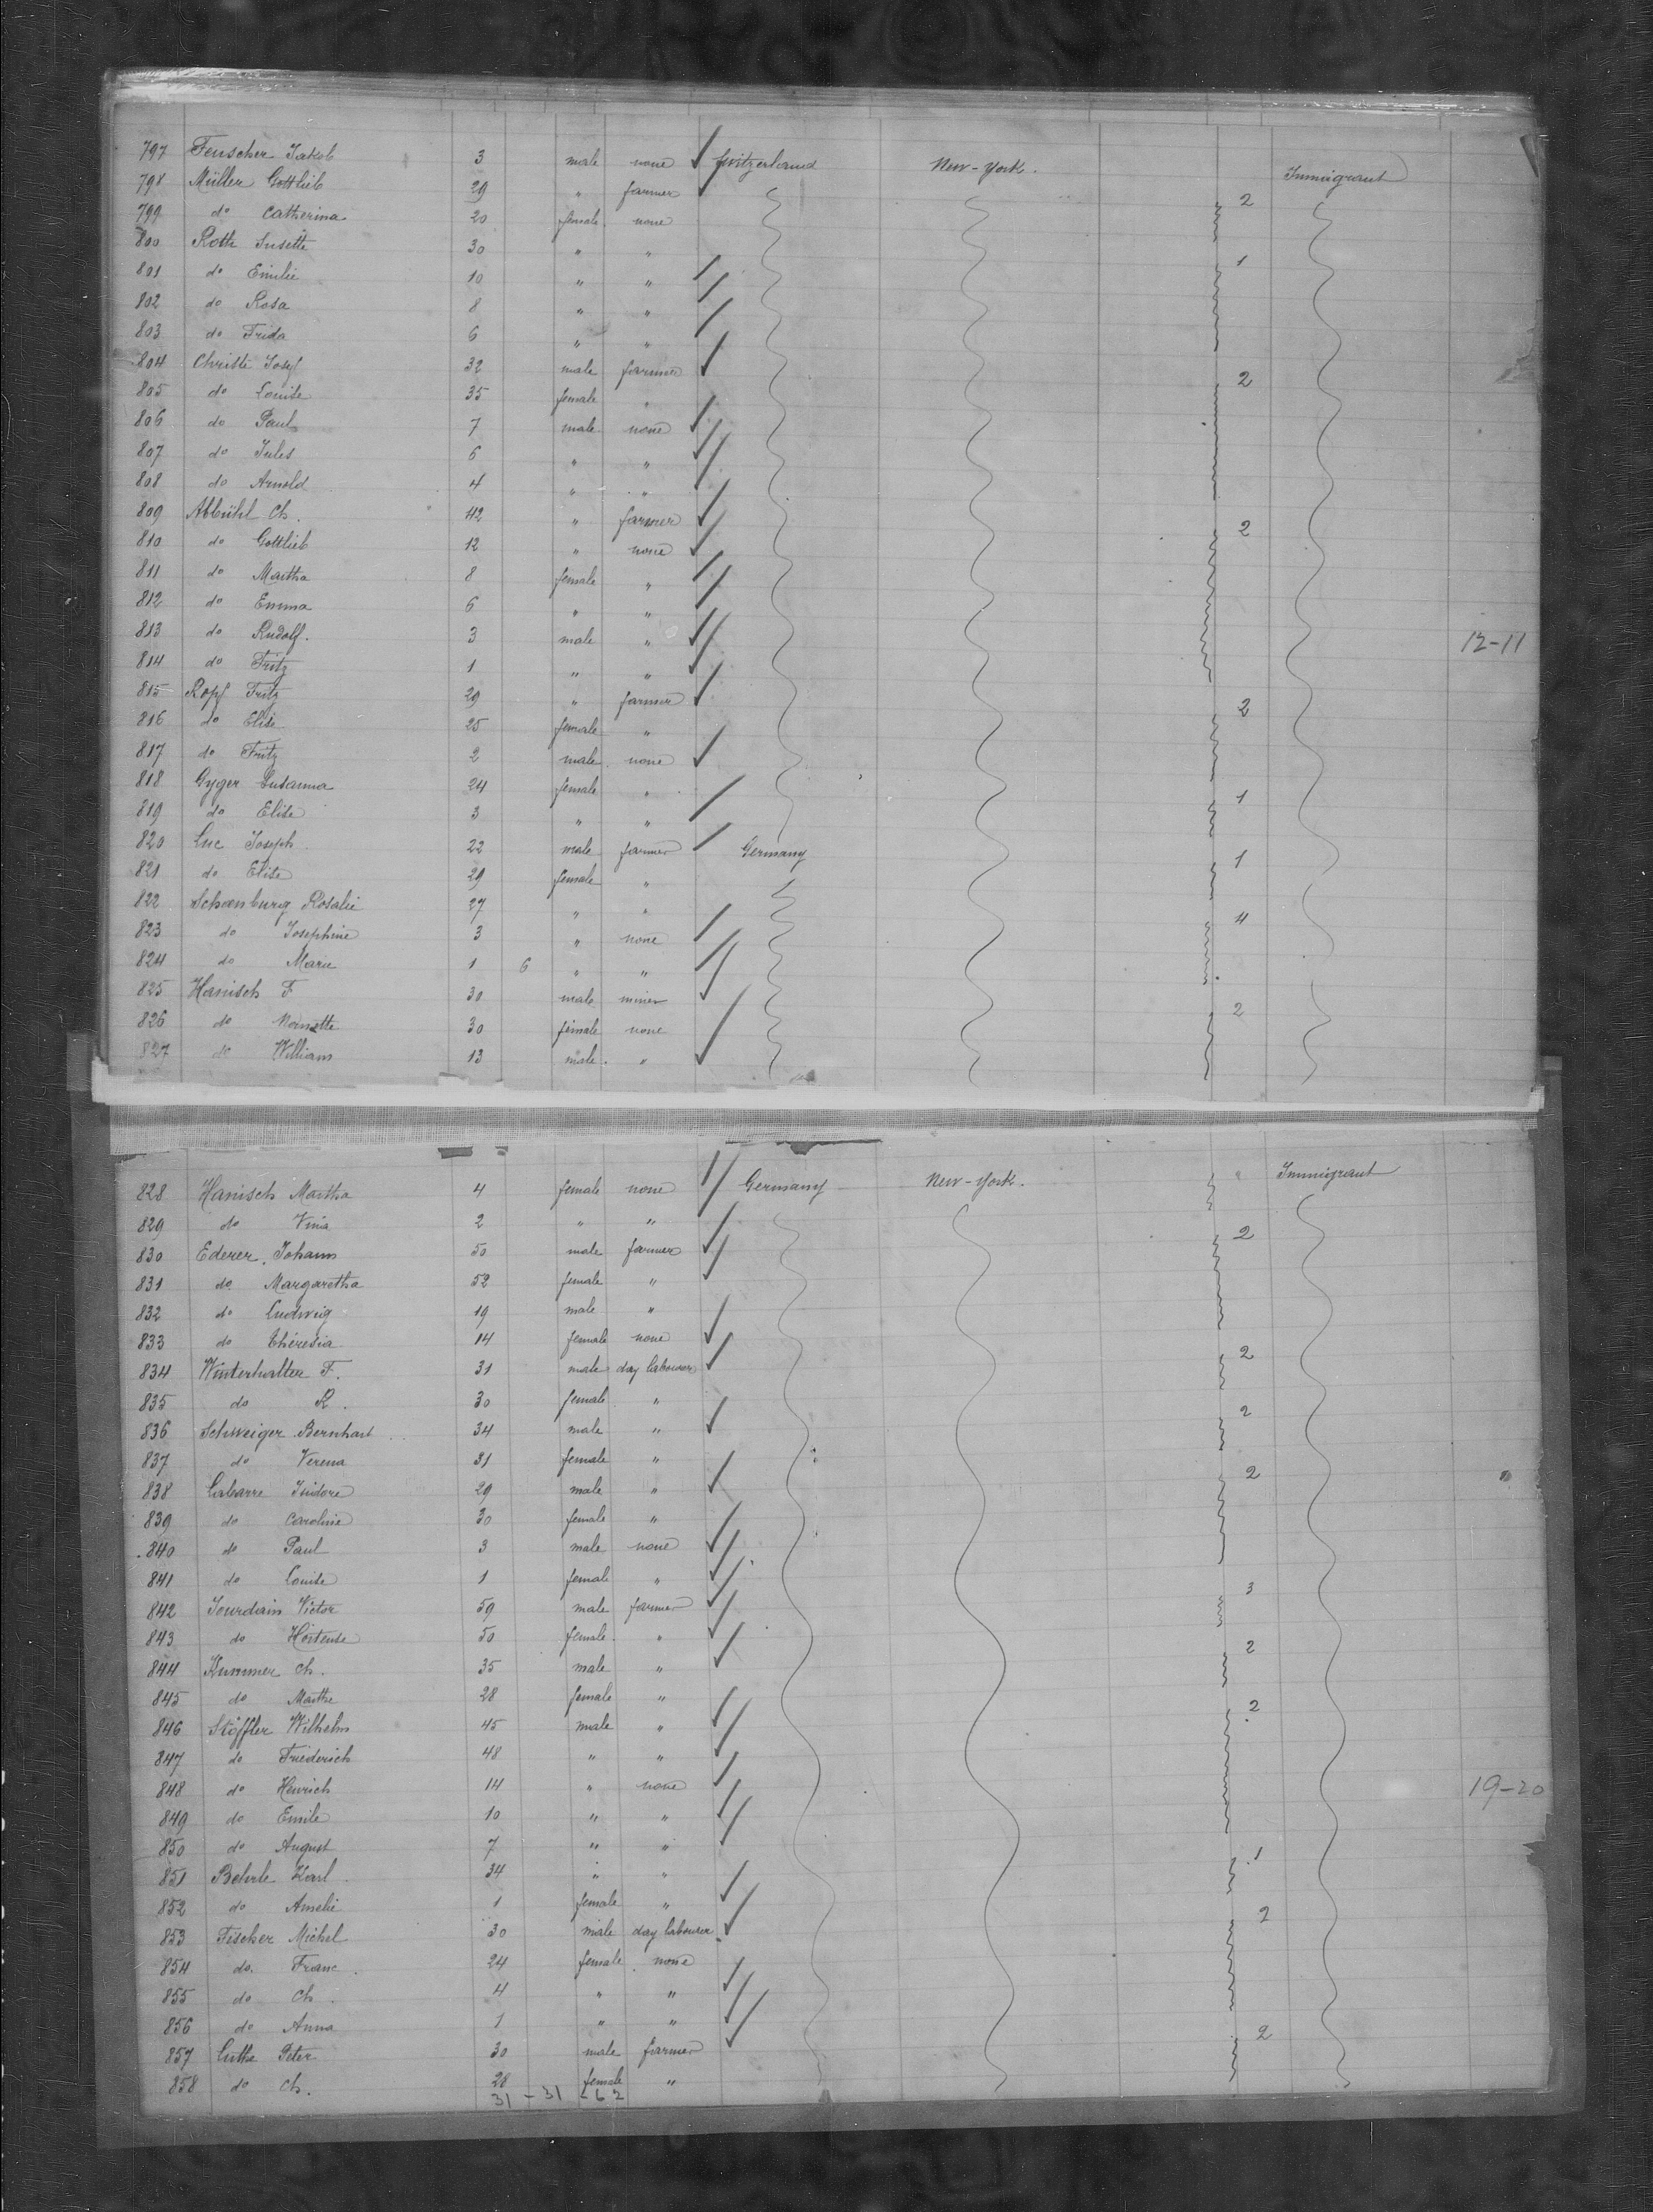 797 Feuscher Jakob 3 male none Switzerland New-York. Immigrant
798 Müller Gottlieb 29 " farmer 2
799 do Catherina 20 female none
800 Roth Susette 30 " " 1
801 do Emilie 10 " "
802 do Rosa 8 " "
803 do Frida 6 " "
804 Christe Josef 32 male farmer 2
805 do Louise 35 female "
806 do Paul 7 male none
807 do Jules 6 " "
808 do Arnold 4 " "
809 Abbühl Ch. 42 " farmer 2
810 do Gottlieb 12 " none
811 do Martha 8 female "
812 do Emma 6 " "
813 do Rudolf. 3 male " 12-11
814 do Fritz 1 " "
815 Ropf Fritz 29 " farmer 2
816 do Elise 25 female "
817 do Fritz 2 male none
818 Gyger Susanna 24 female " 1
819 do Elise 3 " "
820 Luc Joseph 22 male farmer Germany 1
821 do Elise 29 female "
822 Schoenburg Rosalie 27 " " 4
823 do Josephine 3 " none
824 do Marie 1 6 " "
825 Hanisch F 30 male miner 2
826 do 30 female none
827 do William 13 male "
828 Hanisch Martha 4 female none Germany New-York. Immigrant
829 do Vina 2 " "
830 Ederer Johann 50 male farmer 2
831 do Margaretha 52 female "
832 do Ludwig 19 male "
833 do Théresia 14 female none
834 Winterhalter F. 31 male day labourer 2
835 do R. 30 female "
836 Schweiger Bernhart 34 male " 2
837 do Verena 31 female "
838 Labarre Isidore 29 male " 2
839 do Caroline 30 female "
840 do Paul 3 male none
841 do Louise 1 female "
842 Jourdain Victor 59 male farmer 3
843 do Hortense 50 female "
844 Kummer Ch. 35 male " 2
845 do Marthe 28 female "
846 Stöffler Wilhelm 45 male " 2
847 do Friederich 48 " "
848 do Heinrich 14 " none 19-20
849 do Emile 10 " "
850 do August 7 " "
851 Behrle Karl 34 " " 1
852 do Amelie 1 female "
853 Fischer Michel 30 male day labourer 2
854 do. Franc. 24 female none
855 do Ch. 4 " "
856 do Anna 1 " "
857 Luthe Peter 30 male farmer 2
858 do Ch. 28 female "
31-31-62